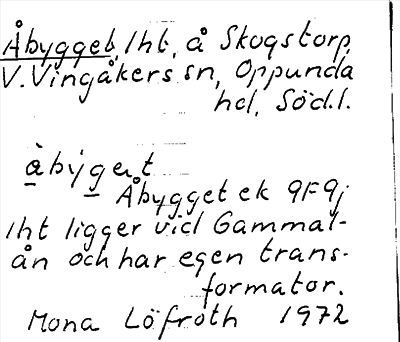 Åbygget, lht, å Skogstorp,
V. Vingåkers sn, Oppunda
hd, Södl.
àbýget
Åbygget ek 9F9j
lht ligger vid Gammal-
ån och har egen trans-
formator.
Mona Löfroth 1972